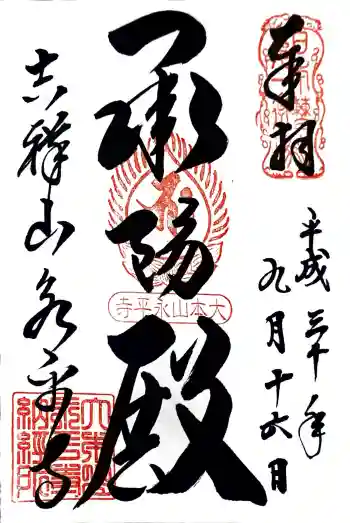 奉拝
平成三十年
九月十六日
承陽殿
寺平永山本大
吉祥山永平寺